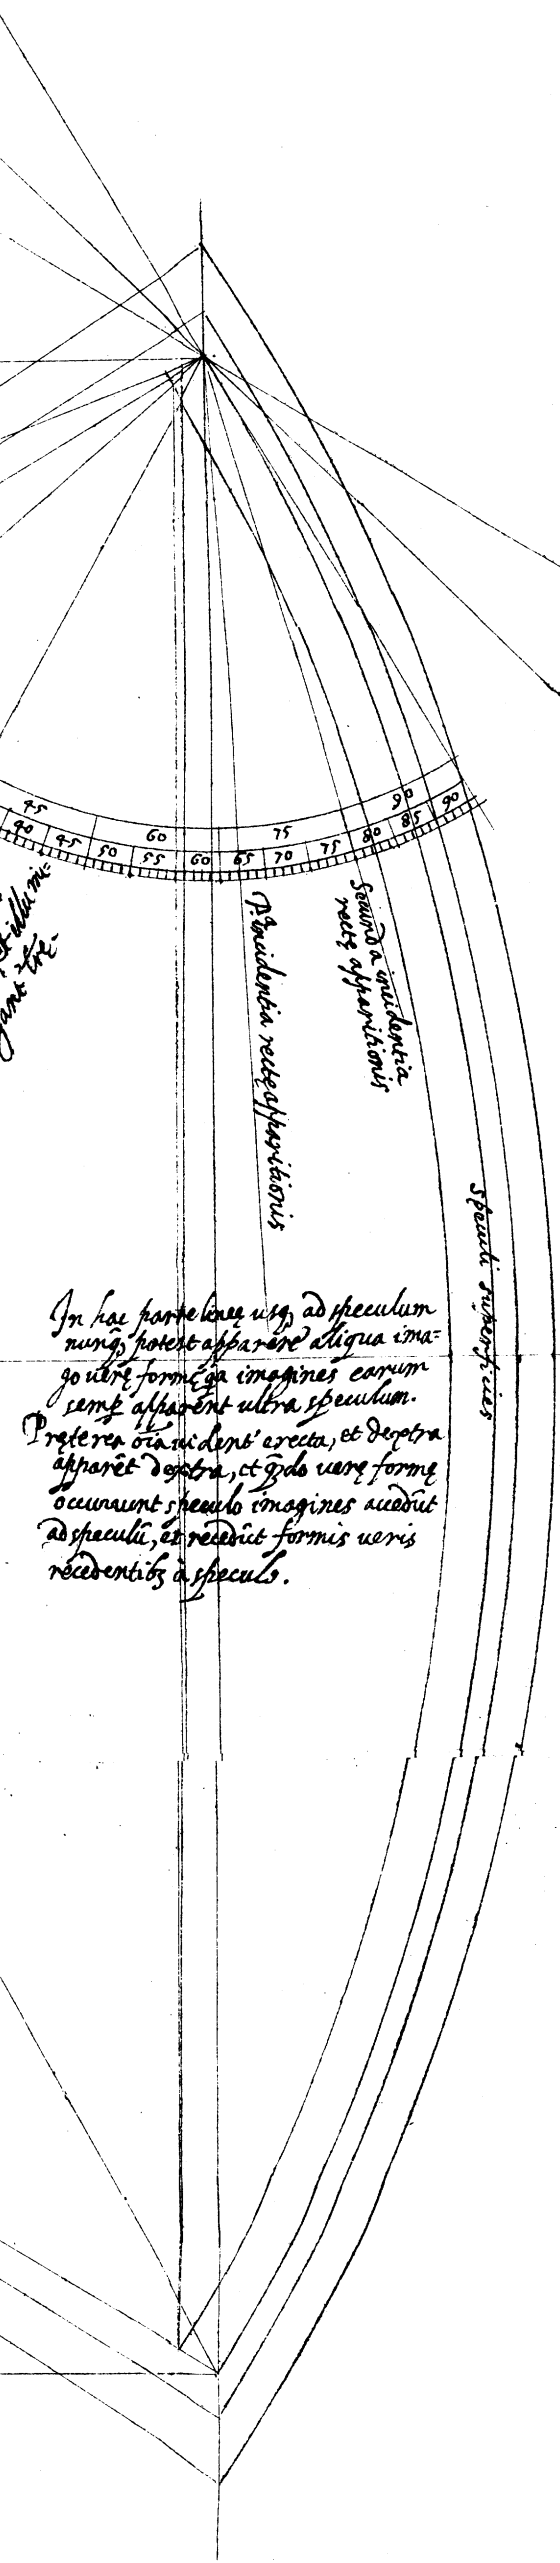 45 60 75 90
40 45 50 55 60 65 70 75 80 85 90
illumi-
P.ª incidentia rectę apparitionis
Secunda incidentia
rectę apparitionis
speculi superficies
In hac parte lineę usq; ad speculum
nunq̃; potest apparere aliqua ima=
go verę formę q̃a imagines earum
semp̱ apparent ultra speculum.
Pręterea oĩa uidentʳ erecta, et dextra
apparẽt dextra, et q̃do uerę formę
occurrunt speculo imagines accedũt
ad speculũ, et recedũt formis ueris
recedentibꝫ à speculo.